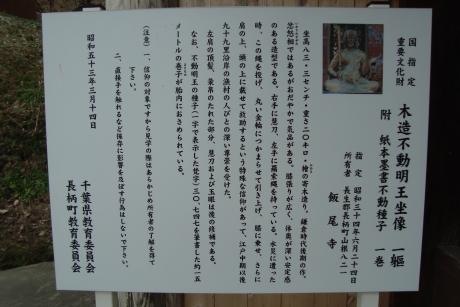 国指定
重要文化財
木造不動明王坐像 一躯
附 紙本墨書不動種子 一巻
指定 昭和三十四年六月二十四日
所有者 長生郡長柄町山根八二一
飯尾寺
坐高八三・三センチ・重さ二〇キロ・桧の寄木造り、鎌倉時代後期の作。
忿怒相ではあるがおだやかで気品がある。膝張りが広く、体奥が深い安定感
のある造型である。右手に慧刀、左手に羂索縄を持っている。水災に遭った
時、この縄を投げ、丸い金輪につかまらせて引き上げ、膝に乗せ、さらに
肩の上、頭の上に載せて救助するという特殊な信仰があって、江戸中期以後
九十九里沿岸の漁村の人びとの深い帰崇を受けた。
左肩の頂髪、条帛のたれた部分、慧刀および玉眼は後の後補である。
なお、不動明王の種子(一字で表示した梵字)三〇、七四七を筆書した約一五
メートルの巻子が胎内におさめられている。
(注意)一、信仰の対象ですから見学の際はあらかじめ所有者の了解を得て
下さい。
二、直接手を触れるなど保存に影響を及ぼす行為はしないで下さい。
昭和五十三年三月十四日
千葉県教育委員会
長柄町教育委員会